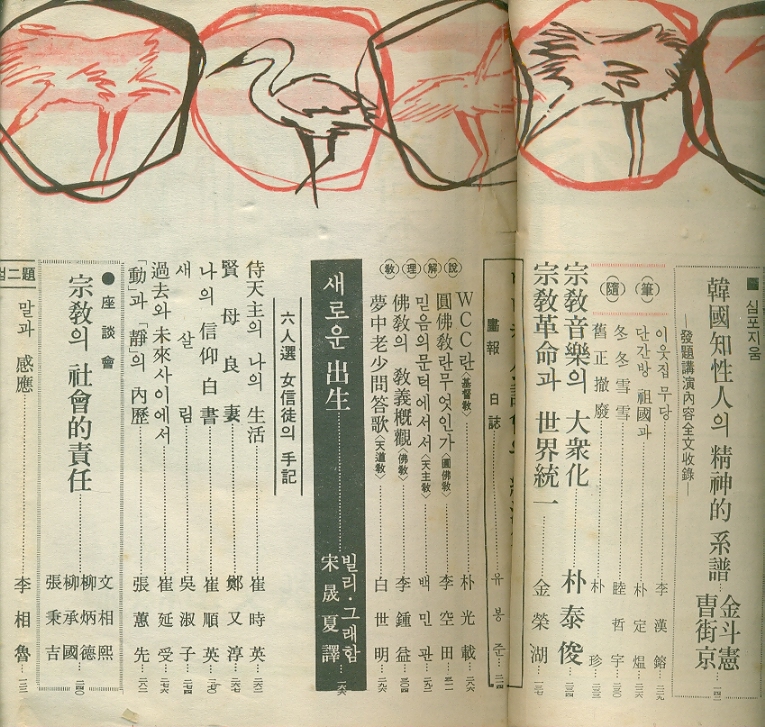 ■ 심포지움
韓國知性人의 精神的 系譜
金斗憲
曹街京
一四二
—發題講演內容全文收錄—
(隨)(筆)
이웃집 무당 李漢鎔 二二九
단간방 祖國과 朴定熅 二三六
冬冬雪雪 睦哲宇
舊正撤廢 朴珍 二三三
宗敎音樂의 大衆化 朴泰俊 二三四
宗敎革命과 世界統一 金榮湖 一三七
畫報 日誌 유봉준
(敎)(理)(解)(說)
WCC란〈基督敎〉 朴光載 二八六
圓佛敎란무엇인가〈圓佛敎〉 李空田 三二
믿음의 문턱에서서〈天主敎〉 백민관 二九二
佛敎의 敎義槪觀〈佛敎〉 李鍾益 三〇四
夢中老少問答歌〈天道敎〉 白世明 二九六
새로운 出生
빌리·그래함
宋晟夏 譯 一六六
六人選 女信徒의 手記
侍天主의 나의 生活 崔時英 二六二
賢母良妻 鄭又淳 二六七
나의 信仰白書 崔順英 二七〇
새 살림 吳淑子
過去와 未來사이에서 崔延受
「動」과「靜」의 內歷 張蕙先 二八二
● 座談會
宗敎의 社會的責任
文相熙
柳炳德
柳承國
張秉吉
二四〇
二題
말과 感應 李相魯 一二三